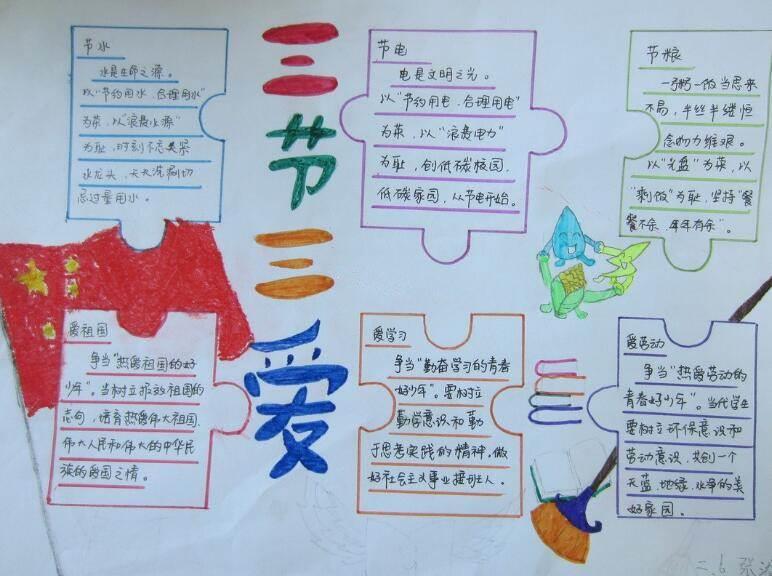 三节三爱
节水
水是生命之源。
以"节约用水、合理用水"
为荣,以"浪费水源"
为耻,时刻不忘关紧
水龙头,天天洗刷切
忌过量用水。
节电
电是文明之光。
以"节约用电、合理用电"
为荣,以"浪费电力"
为耻,创低碳校园,
低碳家园,从节电开始。
节粮
一粥一饭当思来
不易,半丝半缕恒
念物力维艰。
以"光盘"为荣,以
"剩饭"为耻,坚持"餐
餐不余、年年有余"。
爱祖国
争当"热爱祖国的好
少年"。当树立报效祖国的
志向,培育热爱伟大祖国、
伟大人民和伟大的中华民
族的爱国之情。
爱学习
争当"勤奋学习的青春
好少年"。要树立
勤学意识和勤
于思考实践的精神,做
好社会主义事业接班人。
爱劳动
争当"热爱劳动的
青春好少年"。当代学生
要树立环保意识和
劳动意识,共创一个
天蓝、地绿、水净的美
好家园。
二.6 张